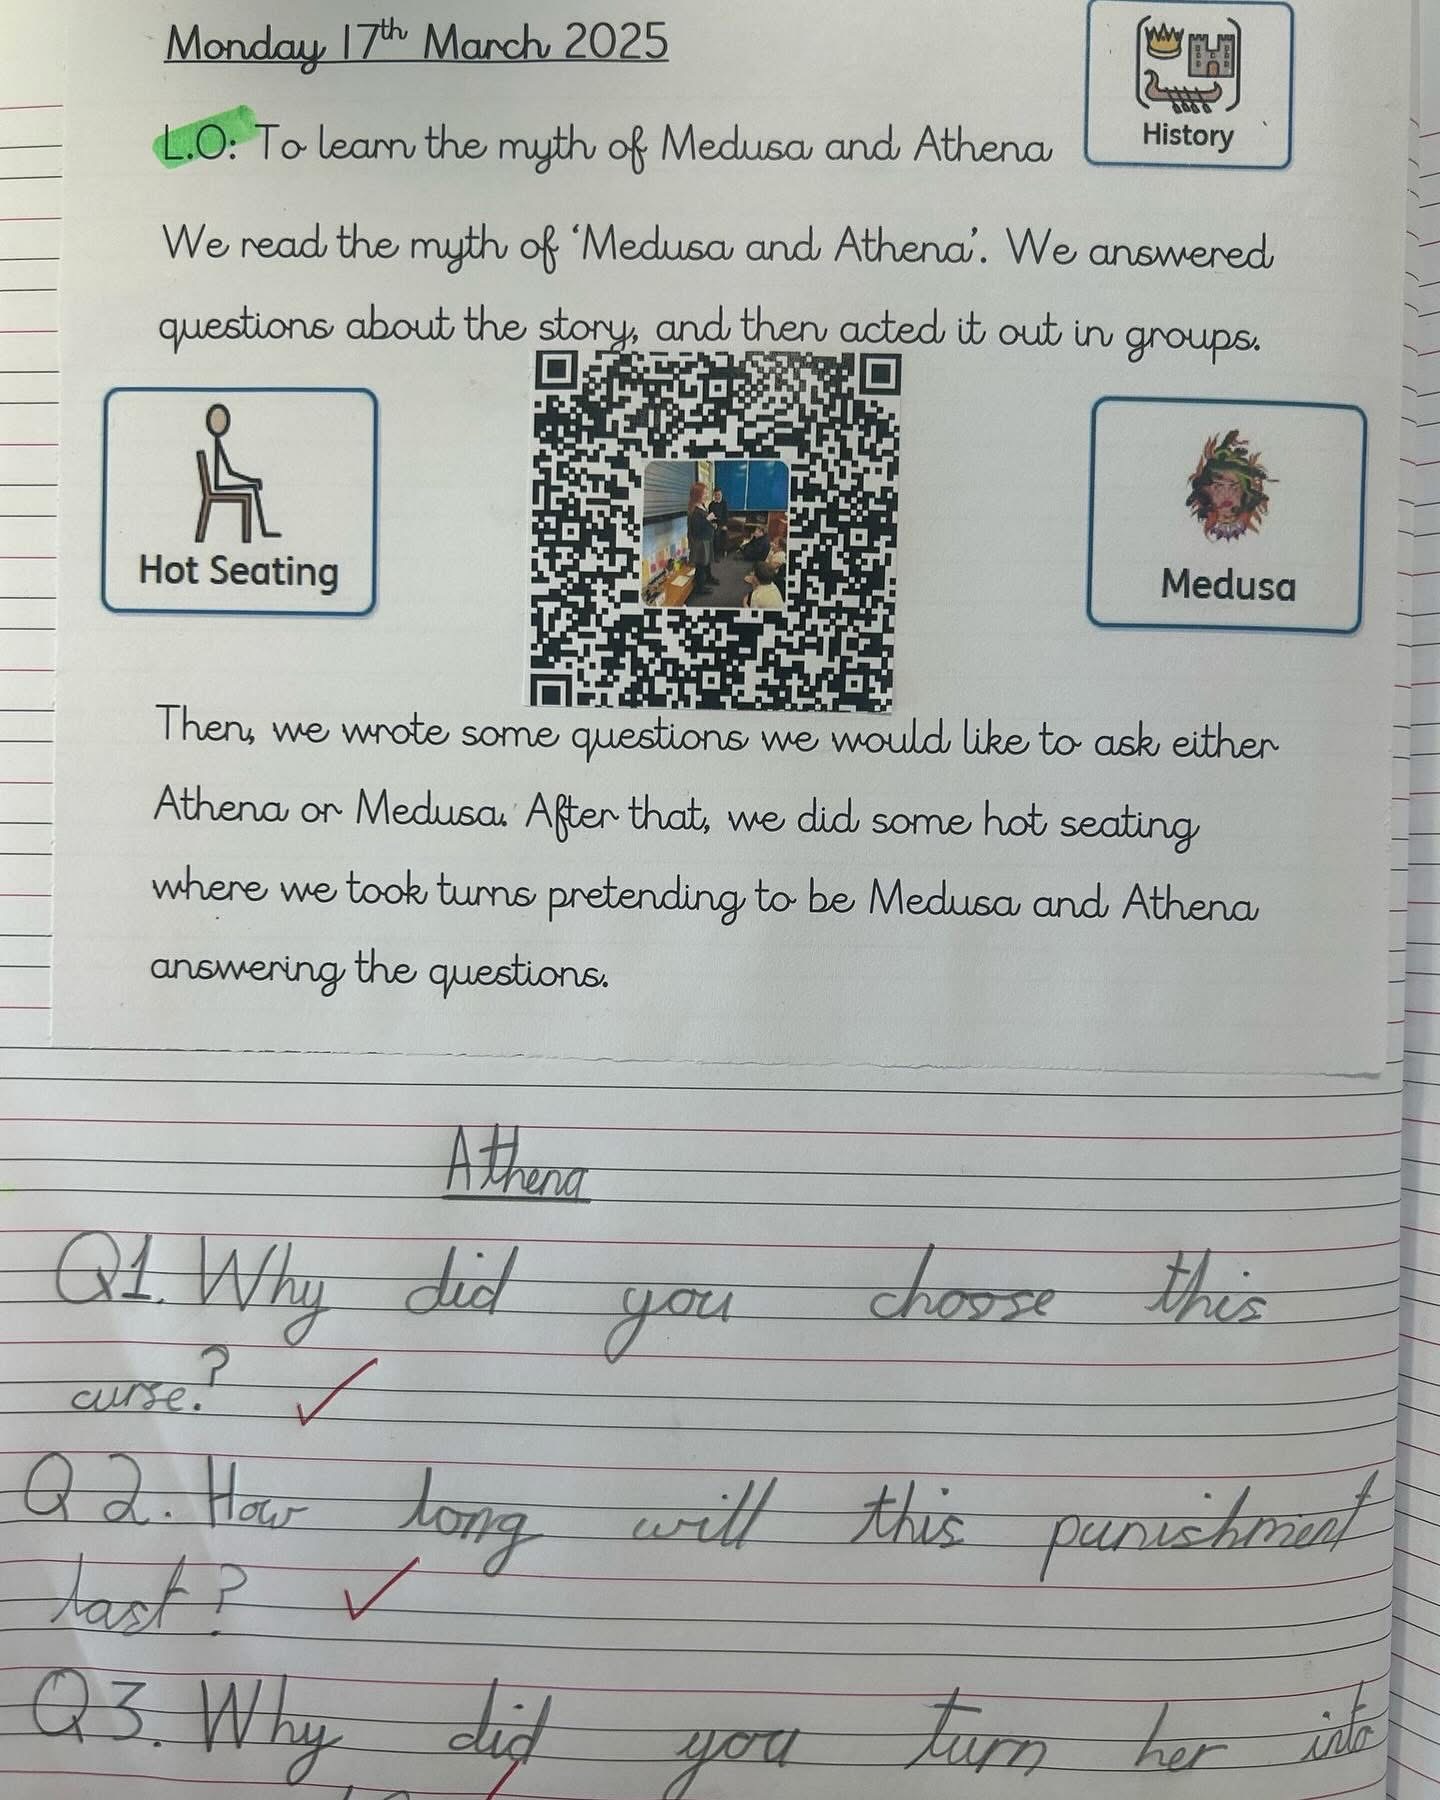 Monday 17th March 2025
History
L.O: To learn the myth of Medusa and Athena
We read the myth of 'Medusa and Athena'. We answered
questions about the story, and then acted it out in groups.
Hot Seating
Medusa
Then, we wrote some questions we would like to ask either
Athena or Medusa. After that, we did some hot seating
where we took turns pretending to be Medusa and Athena
answering the questions.
Athena
Q1. Why did you choose this
curse?
Q2. How long will this punishment
last?
Q3. Why did you turn her into